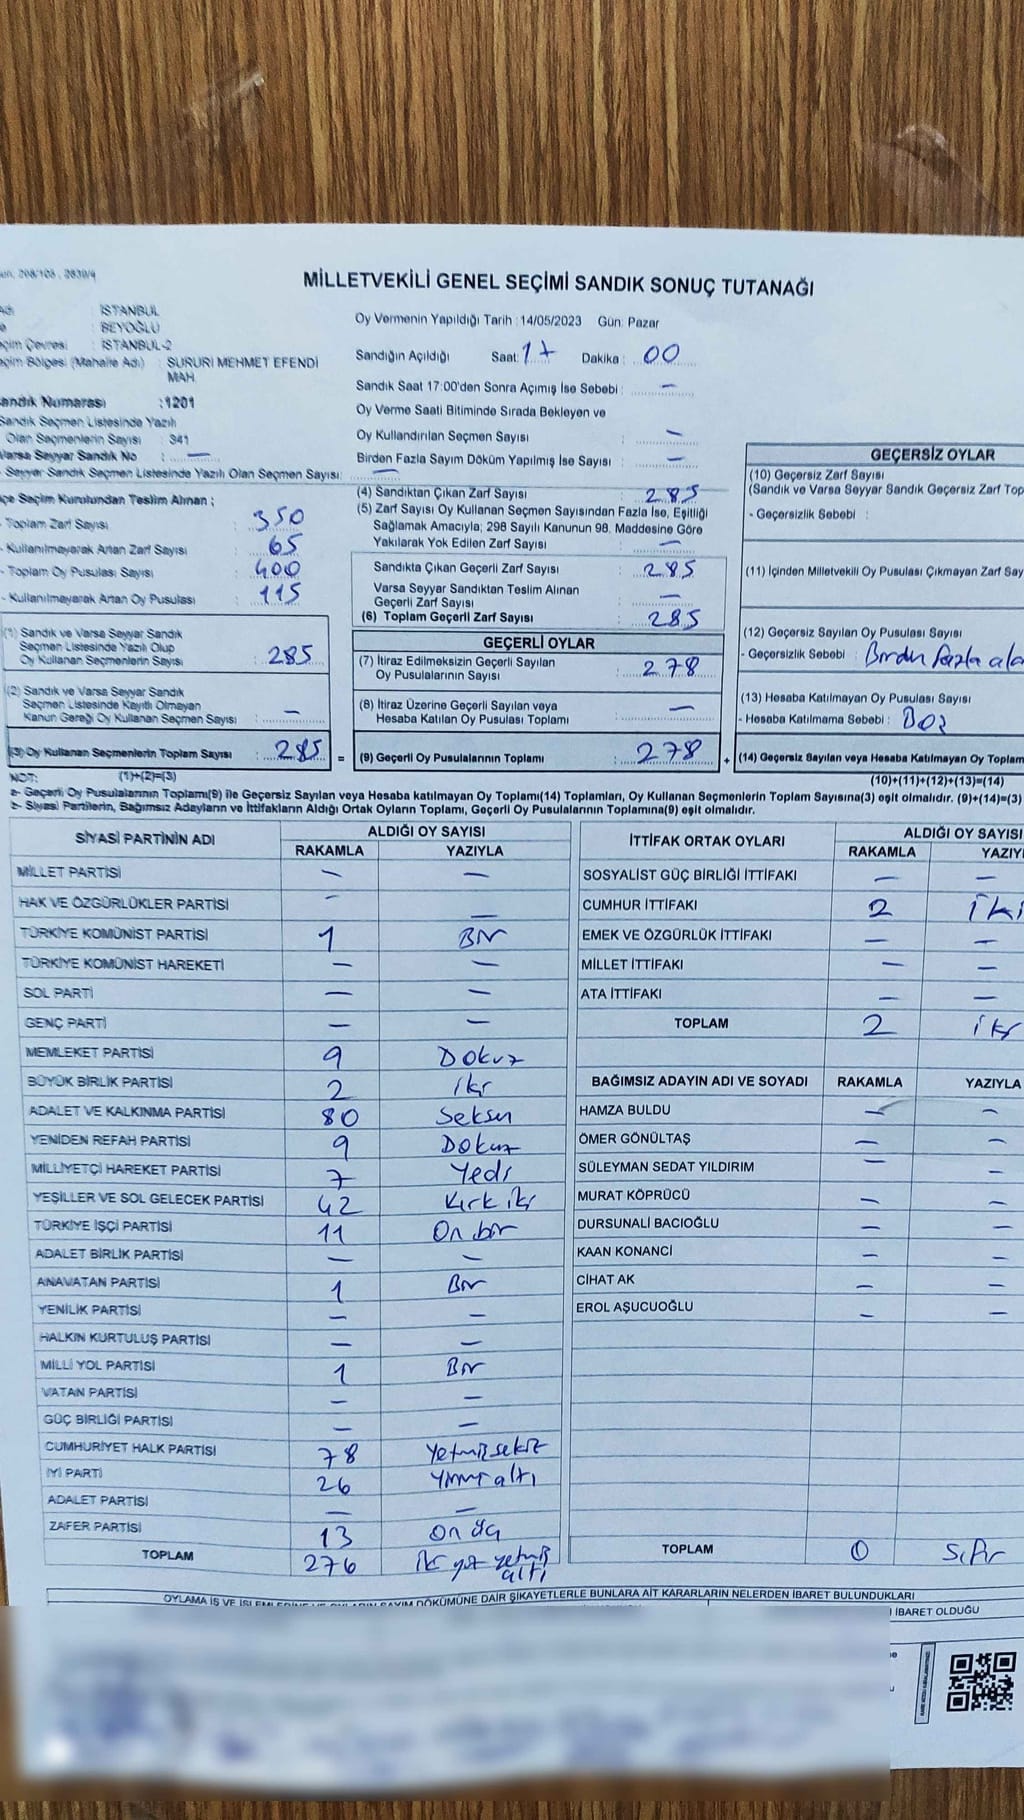 298/108 , 2839/4
MİLLETVEKİLİ GENEL SEÇİMİ SANDIK SONUÇ TUTANAĞI
: İSTANBUL
: BEYOĞLU
Çevresi : İSTANBUL-2
Bölgesi (Mahalle Adı) : SURURİ MEHMET EFENDİ
MAH.
Sandık Numarası :1201
Sandık Seçmen Listesinde Yazılı
Olan Seçmenlerin Sayısı : 341
Varsa Seyyar Sandık No : —
- Seyyar Sandık Seçmen Listesinde Yazılı Olan Seçmen Sayısı: —
Seçim Kurulundan Teslim Alınan ;
- Toplam Zarf Sayısı : 350
- Kullanılmayarak Artan Zarf Sayısı : 65
- Toplam Oy Pusulası Sayısı : 400
- Kullanılmayarak Artan Oy Pusulası : 115
(1) Sandık ve Varsa Seyyar Sandık
Seçmen Listesinde Yazılı Olup
Oy Kullanan Seçmenlerin Sayısı : 285
(2) Sandık ve Varsa Seyyar Sandık
Seçmen Listesinde Kayıtlı Olmayan
Kanun Gereği Oy Kullanan Seçmen Sayısı : —
(3) Oy Kullanan Seçmenlerin Toplam Sayısı : 285 =
Oy Vermenin Yapıldığı Tarih :14/05/2023 Gün: Pazar
Sandığın Açıldığı Saat: 17 Dakika : 00
Sandık Saat 17:00'den Sonra Açılmış İse Sebebi : —
Oy Verme Saati Bitiminde Sırada Bekleyen ve
Oy Kullandırılan Seçmen Sayısı : —
Birden Fazla Sayım Döküm Yapılmış İse Sayısı : —
(4) Sandıktan Çıkan Zarf Sayısı : 285
(5) Zarf Sayısı Oy Kullanan Seçmen Sayısından Fazla İse, Eşitliği
Sağlamak Amacıyla; 298 Sayılı Kanunun 98. Maddesine Göre
Yakılarak Yok Edilen Zarf Sayısı : —
Sandıkta Çıkan Geçerli Zarf Sayısı : 285
Varsa Seyyar Sandıktan Teslim Alınan
Geçerli Zarf Sayısı : —
(6) Toplam Geçerli Zarf Sayısı : 285
GEÇERLİ OYLAR
(7) İtiraz Edilmeksizin Geçerli Sayılan
Oy Pusulalarının Sayısı : 278
(8) İtiraz Üzerine Geçerli Sayılan veya
Hesaba Katılan Oy Pusulası Toplamı : —
(9) Geçerli Oy Pusulalarının Toplamı : 278 +
GEÇERSİZ OYLAR
(10) Geçersiz Zarf Sayısı
(Sandık ve Varsa Seyyar Sandık Geçersiz Zarf Top
- Geçersizlik Sebebi :
(11) İçinden Milletvekili Oy Pusulası Çıkmayan Zarf Say
(12) Geçersiz Sayılan Oy Pusulası Sayısı
- Geçersizlik Sebebi : Birden fazla
(13) Hesaba Katılmayan Oy Pusulası Sayısı
- Hesaba Katılmama Sebebi : Boz
(14) Geçersiz Sayılan veya Hesaba Katılmayan Oy Toplam
NOT: (1)+(2)=(3) (10)+(11)+(12)+(13)=(14)
a- Geçerli Oy Pusulalarının Toplamı(9) ile Geçersiz Sayılan veya Hesaba katılmayan Oy Toplamı(14) Toplamları, Oy Kullanan Seçmenlerin Toplam Sayısına(3) eşit olmalıdır. (9)+(14)=(3)
b- Siyasi Partilerin, Bağımsız Adayların ve İttifakların Aldığı Ortak Oyların Toplamı, Geçerli Oy Pusulalarının Toplamına(9) eşit olmalıdır.
SİYASİ PARTİNİN ADI ALDIĞI OY SAYISI
RAKAMLA YAZIYLA
MİLLET PARTİSİ — —
HAK VE ÖZGÜRLÜKLER PARTİSİ — —
TÜRKİYE KOMÜNİST PARTİSİ 1 Bir
TÜRKİYE KOMÜNİST HAREKETİ — —
SOL PARTİ — —
GENÇ PARTİ — —
MEMLEKET PARTİSİ 9 Dokuz
BÜYÜK BİRLİK PARTİSİ 2 iki
ADALET VE KALKINMA PARTİSİ 80 Seksen
YENİDEN REFAH PARTİSİ 9 Dokuz
MİLLİYETÇİ HAREKET PARTİSİ 7 Yedi
YEŞİLLER VE SOL GELECEK PARTİSİ 42 Kırk iki
TÜRKİYE İŞÇİ PARTİSİ 11 On bir
ADALET BİRLİK PARTİSİ — —
ANAVATAN PARTİSİ 1 Bir
YENİLİK PARTİSİ — —
HALKIN KURTULUŞ PARTİSİ — —
MİLLİ YOL PARTİSİ 1 Bir
VATAN PARTİSİ — —
GÜÇ BİRLİĞİ PARTİSİ — —
CUMHURİYET HALK PARTİSİ 78 Yetmiş sekiz
İYİ PARTİ 26 Yirmi altı
ADALET PARTİSİ — —
ZAFER PARTİSİ 13 On üç
TOPLAM 276 iki yüz yetmiş
altı
İTTİFAK ORTAK OYLARI ALDIĞI OY SAYISI
RAKAMLA YAZIYL
SOSYALİST GÜÇ BİRLİĞİ İTTİFAKI — —
CUMHUR İTTİFAKI 2 iki
EMEK VE ÖZGÜRLÜK İTTİFAKI — —
MİLLET İTTİFAKI — —
ATA İTTİFAKI — —
TOPLAM 2 iki
BAĞIMSIZ ADAYIN ADI VE SOYADI RAKAMLA YAZIYLA
HAMZA BULDU — —
ÖMER GÖNÜLTAŞ — —
SÜLEYMAN SEDAT YILDIRIM — —
MURAT KÖPRÜCÜ — —
DURSUNALİ BACIOĞLU — —
KAAN KONANCİ — —
CİHAT AK — —
EROL AŞUCUOĞLU — —
TOPLAM 0 Sıfır
DÖKÜMÜNE DAİR ŞİKAYETLERLE BUNLARA AİT KARARLARIN NELERDEN İBARET BULUNDUKLARI
İBARET OLDUĞU